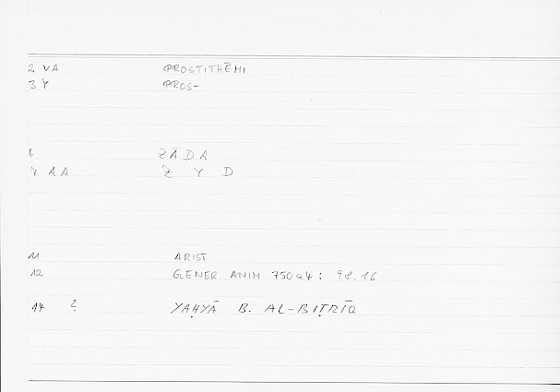 2 VA PROSTITHĒMI
3 Y PROS-
6 ZĀDA
7 AA Z Y D
11 ARIST
12 GENER ANIM 750a4 : 98.16
14 ? YAḤYĀ B. AL-BIṬRĪQ